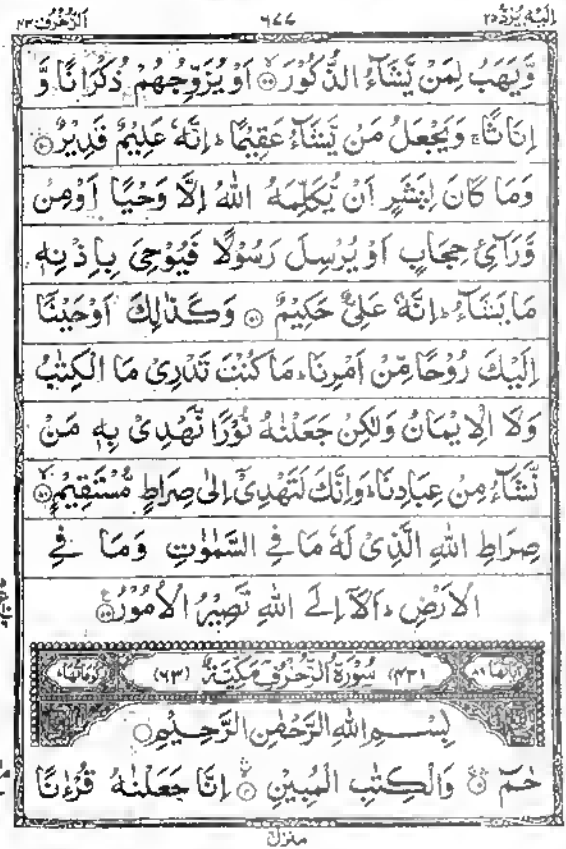 اِلَیْهِ یُرَدُّ ۲۵ ۶۸۸ اَلزُّخْرُف ۴۳
وَّیَهَبُ لِمَنْ یَّشَآءُ الذُّكُوْرَ ۴۹ اَوْ یُزَوِّجُهُمْ ذُكْرَانًا وَّ
اِنَاثًا ۚ وَیَجْعَلُ مَنْ یَّشَآءُ عَقِیْمًا ؕ اِنَّهٗ عَلِیْمٌ قَدِیْرٌ ۵۰
وَمَا كَانَ لِبَشَرٍ اَنْ یُّكَلِّمَهُ اللّٰهُ اِلَّا وَحْیًا اَوْ مِنْ
وَّرَآئِ حِجَابٍ اَوْ یُرْسِلَ رَسُوْلًا فَیُوْحِیَ بِاِذْنِهٖ
مَا یَشَآءُ ؕ اِنَّهٗ عَلِیٌّ حَكِیْمٌ ۵۱ وَكَذٰلِكَ اَوْحَیْنَاۤ
اِلَیْكَ رُوْحًا مِّنْ اَمْرِنَا ؕ مَا كُنْتَ تَدْرِیْ مَا الْكِتٰبُ
وَلَا الْاِیْمَانُ وَلٰكِنْ جَعَلْنٰهُ نُوْرًا نَّهْدِیْ بِهٖ مَنْ
نَّشَآءُ مِنْ عِبَادِنَا ؕ وَاِنَّكَ لَتَهْدِیْۤ اِلٰی صِرَاطٍ مُّسْتَقِیْمٍ ۵۲
صِرَاطِ اللّٰهِ الَّذِیْ لَهٗ مَا فِی السَّمٰوٰتِ وَمَا فِی
الْاَرْضِ ؕ اَلَاۤ اِلَی اللّٰهِ تَصِیْرُ الْاُمُوْرُ ۵۳
اٰیَاتُهَا ۸۹ (۴۳) سُوْرَةُ الزُّخْرُفِ مَكِّیَّةٌ (۶۳) رُكُوْعَاتُهَا ۷
بِسْمِ اللّٰهِ الرَّحْمٰنِ الرَّحِیْمِ
حٰمٓ ۱ وَالْكِتٰبِ الْمُبِیْنِ ۲ اِنَّا جَعَلْنٰهُ قُرْءٰنًا
منزل